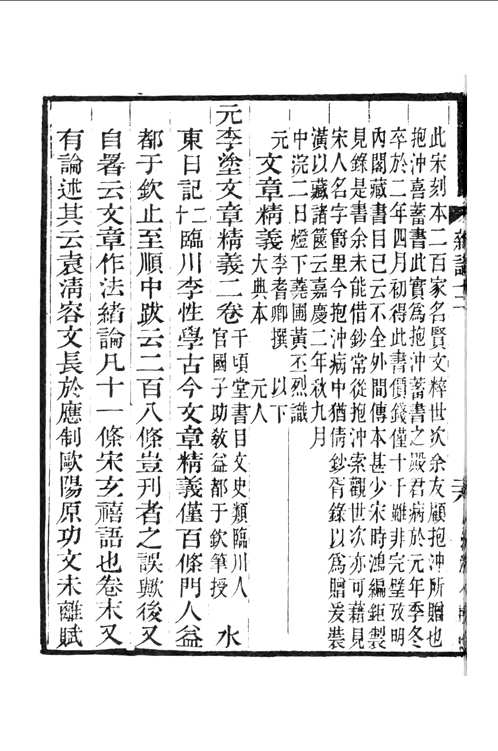 此宋刻本二百家名賢文粹世次余友顧抱沖所贈也
抱沖喜蓄書此實為抱沖蓄書之殿君病於元年季冬
卒於二年四月初得此書價錢僅十千雖非完璧攷明
內閣藏書目已云不全外間傳本甚少宋時鴻編鉅製
見錄是書余未能借鈔常從抱沖索觀世次亦可藉見
宋人名字爵里今抱沖病中猶倩鈔胥錄以為贈爰裝
潢以藏諸篋云嘉慶二年秋九月
中浣二日燈下蕘圃黃丕烈識
元 文章精義 李耆卿撰 以下
大典本 元人
元李塗文章精義二卷 千頃堂書目文史類臨川人
官國子助敎益都于欽筆授 水
東日記二十臨川李性學古今文章精義僅百條門人益
都于欽止至順中跋云二百八條豈刊者之誤歟後又
自署云文章作法緒論凡十一條宋玄禧語也卷末又
有論述其云袁淸容文長於應制歐陽原功文未離賦